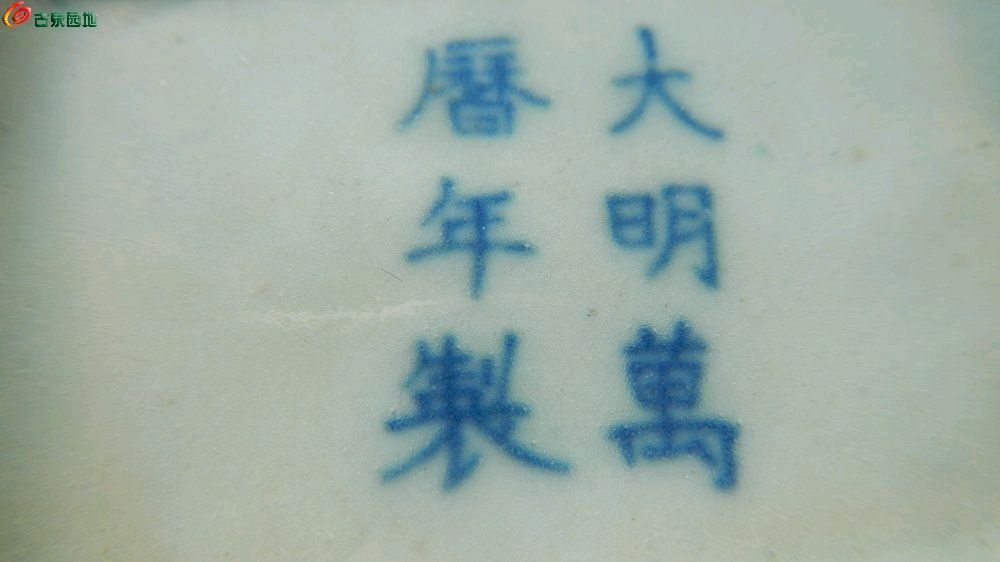 古泉园地
大明萬
曆年製